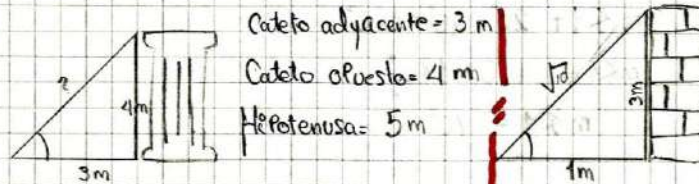 ?
4m
3m
Cateto adyacente = 3 m
Cateto opuesto = 4 m
Hipotenusa = 5 m
√10
3m
1m